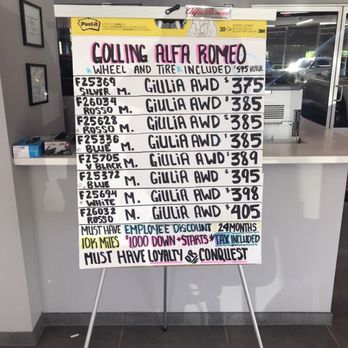 Post-it
Alfa Romeo
3M
GOLLING ALFA ROMEO
*WHEEL AND TIRE* INCLUDED $595 VALUE
F25369 SILVER M. GIULIA AWD $375
F26034 ROSSO M. GIULIA AWD $385
F25628 ROSSO M. GIULIA AWD $385
F25336 BLUE M. GIULIA AWD $385
F25705 V BLACK M. GIULIA AWD $389
F25372 BLUE M. GIULIA AWD $395
F25694 WHITE M. GIULIA AWD $398
F26032 ROSSO M. GIULIA AWD $405
MUST HAVE EMPLOYEE DISCOUNT 24 MONTHS
10K MILES $1000 DOWN + STARTS * TAX INCLUDED
MUST HAVE LOYALTY OR CONQUEST